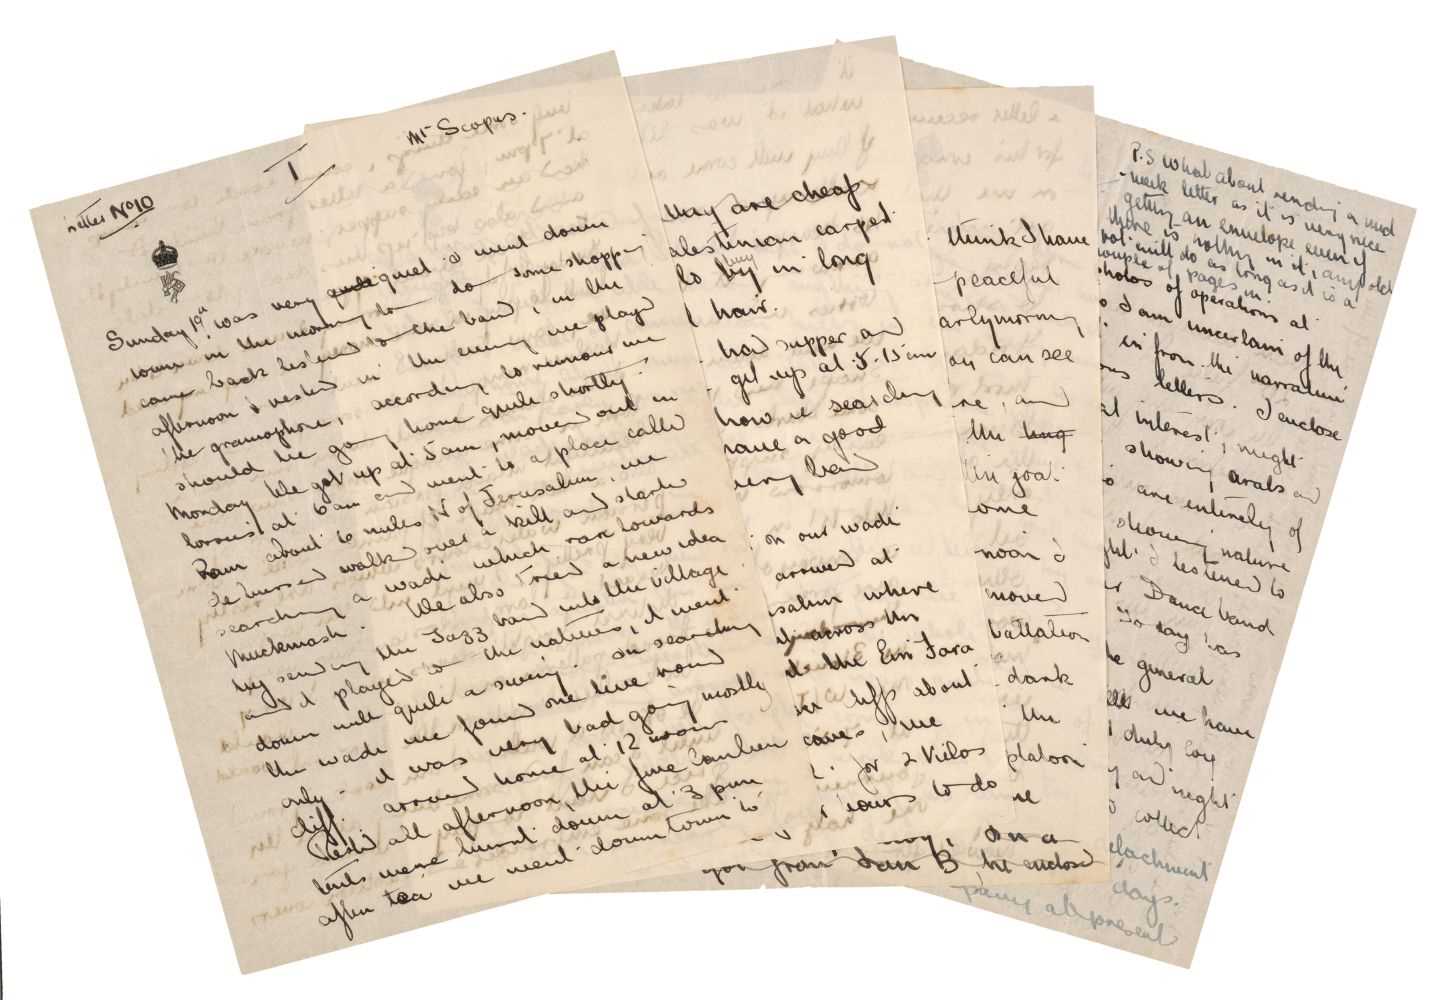 Letter No 10
1
Mt Scopus.
Sunday 19th was very quiet I went down
town in the morning to do some shopping
came back listened to the band, in the
afternoon I rested in the evening we played
the gramophone, according to rumour we
should be going home quite shortly.
Monday We got up at 5 am, moved out in
lorries at 6 am and went to a place called
Ram about 6 miles N of Jerusalem, we
debussed walked over a hill and started
searching a wadi which ran towards
Muckmash. We also tried a new idea
by sending the Jazz band into the village
and it played to the natives, it went
down with quite a swing. In searching
the wadi we found one live round
only - it was very bad going mostly
cliff. arrived home at 12 noon
rested all afternoon, the June Canteen
tents were burnt down at 3 pm
after tea we went down town to
they are cheap
alestinian carpet
to buy in long
hair.
had supper and
get up at 5.15 am
how we searching
have a good
very hard
on our wadi
arrived at
salem where
across the
the Ein Fara
cliffs about
caves, we
for 2 Kilos
hours to do
you from Ian B he enclosed
think I have
peaceful
early morning
you can see
and
the
in goat
ome
noon I
moved
battalion
dank
the
platoon
on a
P.S what about sending a mid
-week letter as it is very nice
getting an envelope even if
there is nothing in it, any old
rot will do as long as it is a
couple of pages in.
photos of operations at
I am uncertain of the
in from the narrative
ous letters. I enclose
interest, might
showing arabs and
are entirely of
showing nature
I listened to
Dance band
To day was
the general
we have
duty Coy
and night
collect
detachment
days.
at present